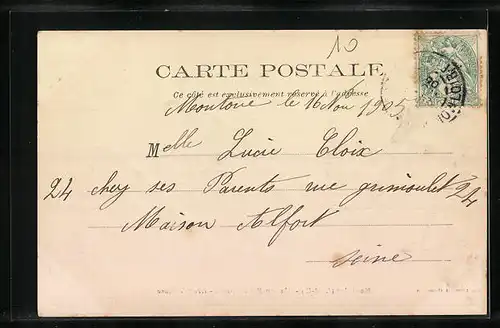 10
CARTE POSTALE
Ce côté est exclusivement réservé à l'adresse
le 16 Nov 1905
Melle Lucie Cloix
24 chez ses Parents rue grimoulet 24
Maison Alfort
Seine